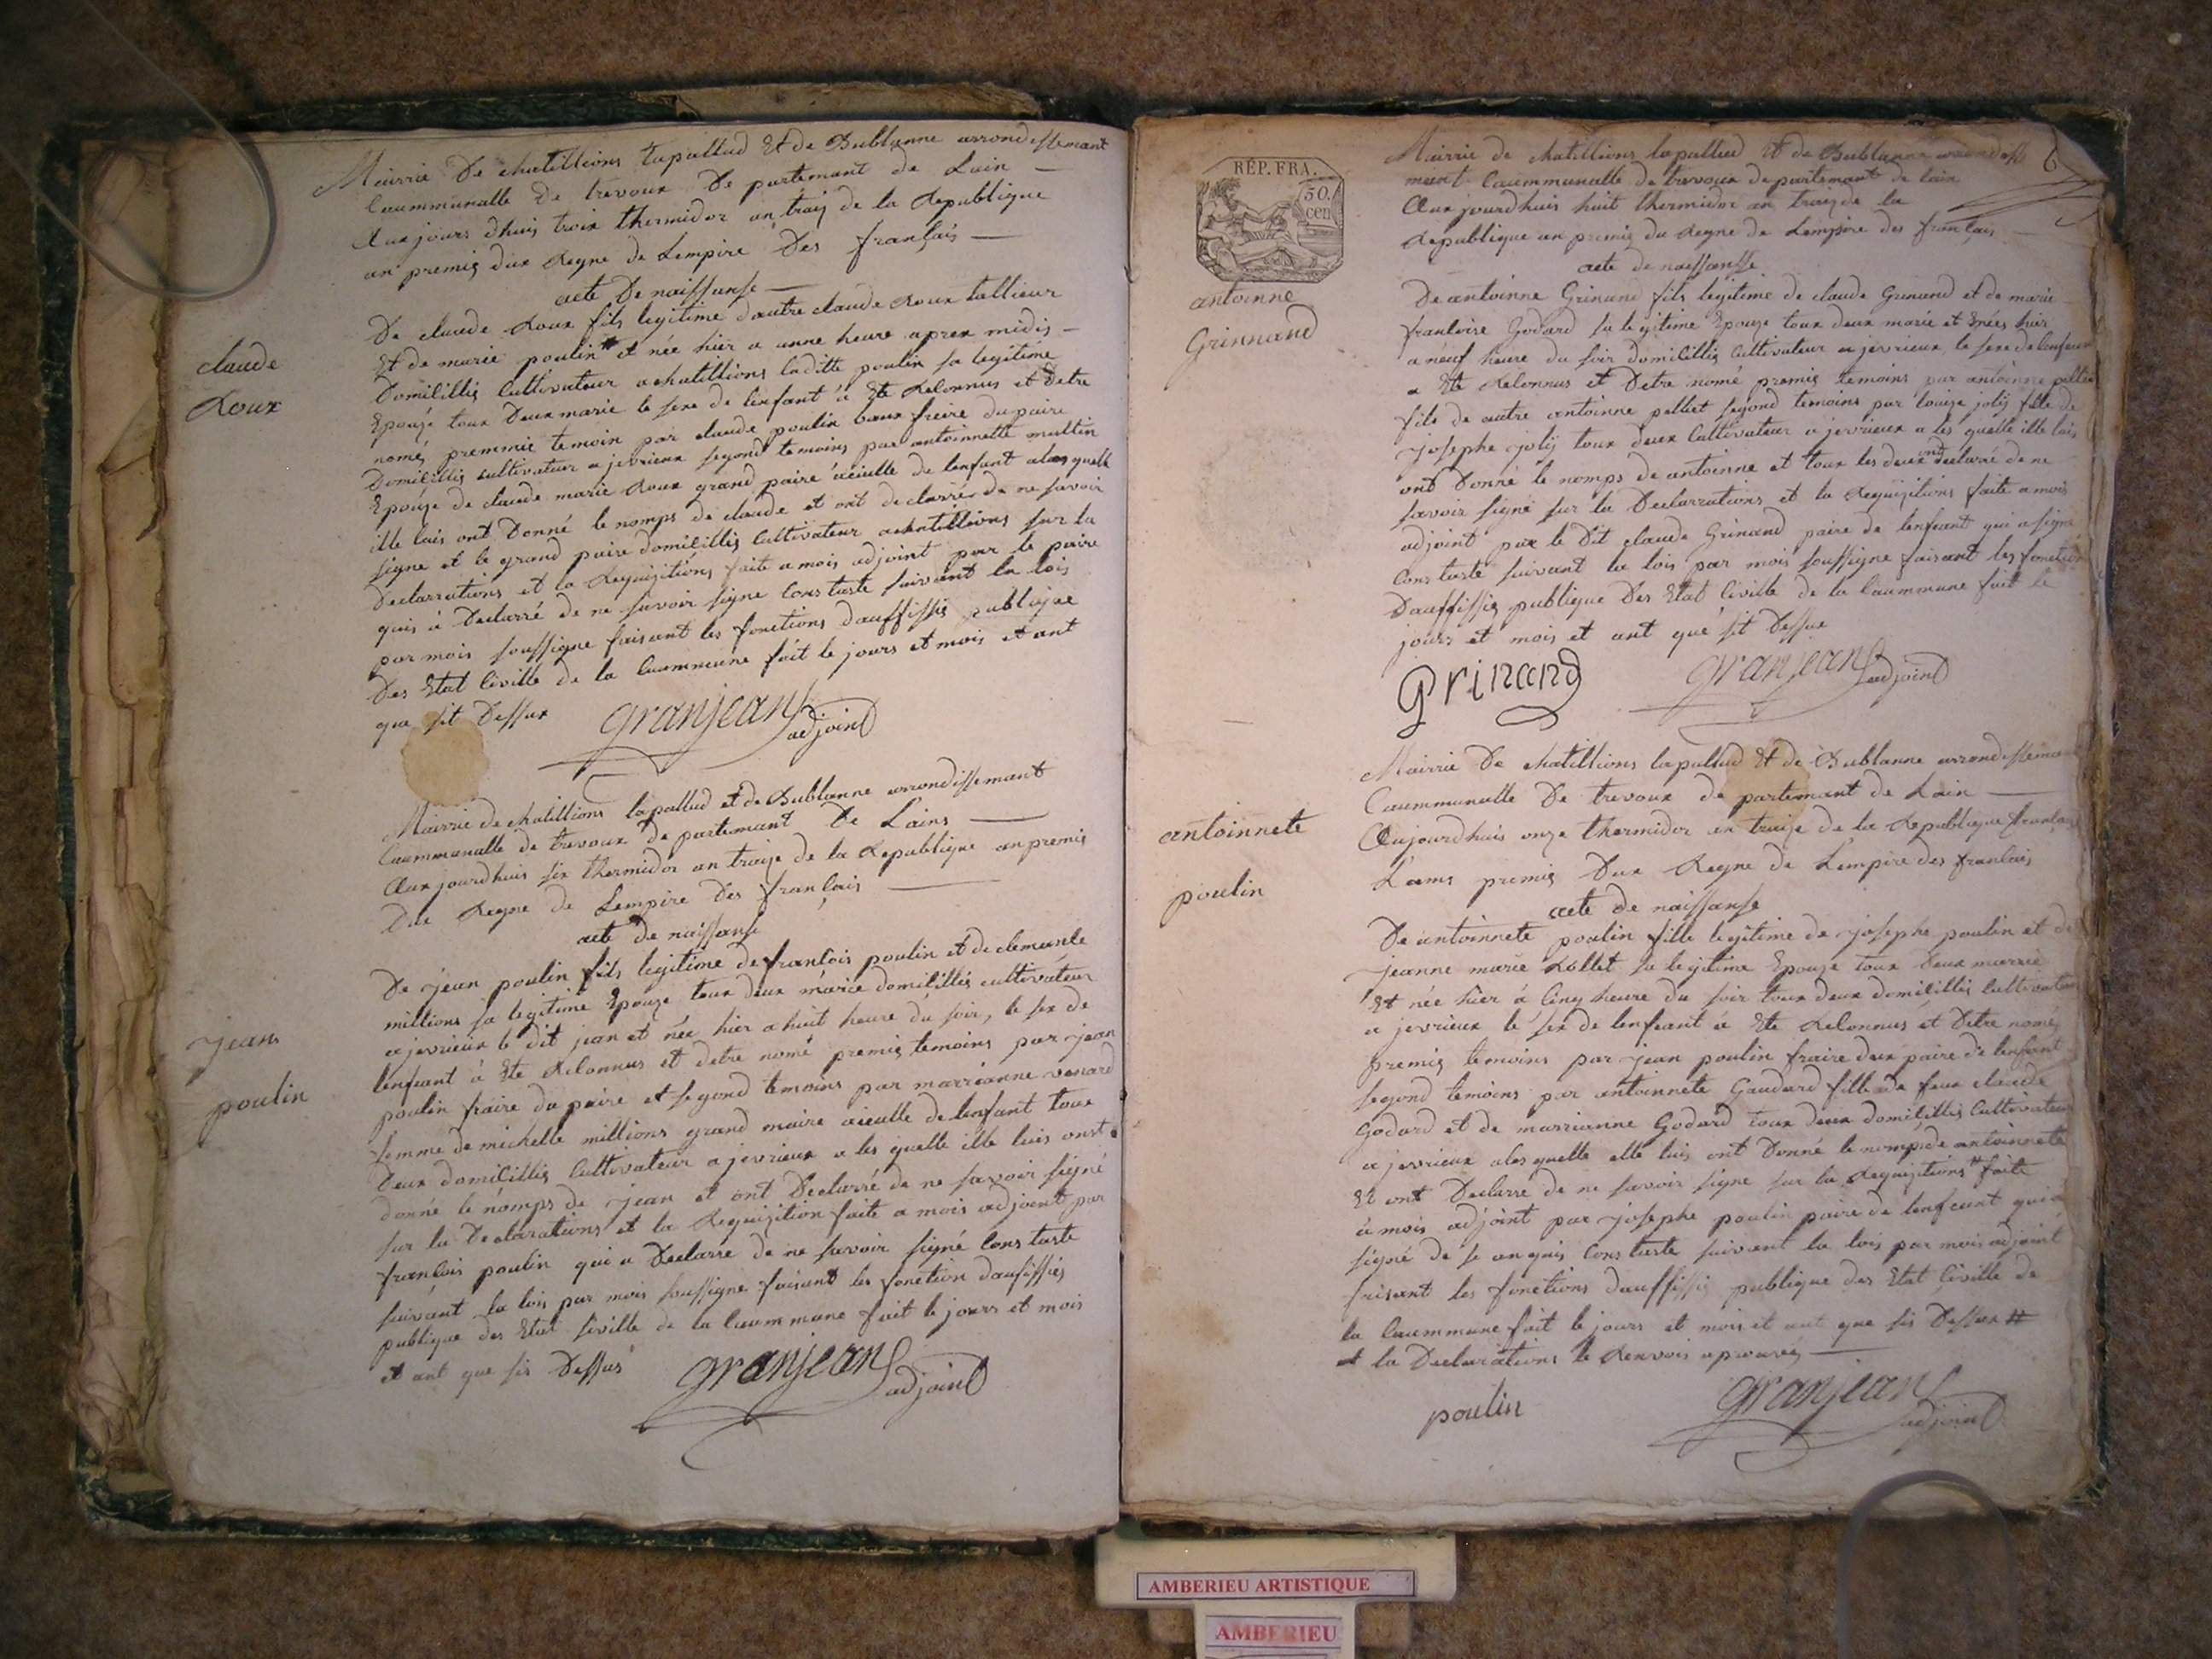 Mairrie De chatillions lapallud Et de Bublanne arrondissemant
Caummunalle De trevoux De partemant de Lain
Aux jours dhuis troix thermidor an traiz de la Republique
an premis dux Regne de Lempire Des français
acte De naissansse
claude
Roux
De claude Roux fils legitime dautre claude Roux tallieur
Et de marie poulin # et née hier a unne heure aprex midis
Domicillis Cultivateur a chatillions laditte poulin sa legitime
Epouze toux Deux marie le sexe de lenfant à Ete Reconnus et Detre
només premmié temoin par claude poulin baux freire du paire
Domicillis cultivateur a jevrieux segond temoins par antoinnette
Epouze de claude marie Roux grand paire aieulle de lenfant
ille luis ont Donné le nomps de claude et ont declarré de ne savoir
signe et le grand paire domicillis Cultivateur a chatillions sur la
Declarrations et la Requizitions faite a mois adjoint par le paire
quis à Declarré de ne savoir signe Constaste suivant la lois
par mois soussigne faisant les fonctions dauffissis publique
Des Etat Civille de la Caummune fait le jours et mois et ant
que sit Dessux
granjean
adjoint
Mairrie de chatillions lapallud et de Bublanne arrondissemant
Caummunalle de trevoux de partemant De Lains
Aux jourdhuis six thermidor an traize de la Republique an premis
Dux Regne de Lempire Des français
acte de naissansse
jean
poulin
De jean poulin fils legitime de francois poulin et de
millions sa legitime Epouze toux deux marie domicillis cultivateur
a jevrieux le dit jean et née hier a huit heure du soir, le sex de
lenfeant à Ete Reconnus et detre nomé premis temoins par jean
poulin fraire du paire et segond temoins par marrianne
femme de michelle millions grand maire aieulle de lenfant toux
Deux domicillis Cultivateur a jevrieux a les quelle ille luis onst
donné le nomps de jean et ont Declarré de ne savoir signé
sur la Declarations et la Requizition faite a mois adjoint par
francois poulin qui a Declarré de ne savoir signé Constaste
suivant la lois par mois soussigne faisant les fonction daufissies
publique des Etat siville de la Caummune fait le jours et mois
et ant que sis Dessus
granjean
adjoint
RÉP. FRA.
50.
cen
6
Mairrie de chatillions lapallud Et de Bublanne
mant Caummunalle de trevoux de partemant de lain
Aux jourdhuis huit thermidor an traize de la
Republique an premis du Regne de Lempire des français
acte de naissansse
antoinne
Grinnand
De antoinne Grinand fils legitime de claude Grinand et de marie
francoise Godard sa legitime Epouze toux deux marie et Enées hier
a neuf heure du soir domicillis Cultivateur a jevrieux le sexe de lenfeant
a Ete Reconnus et Detre nomé premis temoins par antoinne
fils de autre antoinne pelliet segond temoins par louize jolij fille de
josephe jolij toux deux Cultivateur a jevrieux a les quelle ille luis
ont Donné le nomps de antoinne et toux les deux ont declaré de ne
savoir signé sur la Declarrations et la Requizitions faite a mois
adjoint par le Dit claude Grinand paire de lenfeant qui a signe
Constaste suivant la lois par mois soussigne faisant les
Dauffissis publique Des Etat Civille de la Caummune fait le
jours et mois et ant que sit Dessue
Grinand
granjean
adjoint
Mairrie De chatillions lapallud Et de Bublanne
Caummunalle De trevoux de partemant de Lain
Aujourdhuis onze thermidor an traize de la Republique
Lams premis Dux Regne de Lempire des francais
acte de naissansse
antoinnete
poulin
De antoinnete poulin fille legitime de josephe poulin et de
jeanne marie Rollet sa legitime Epouze toux deux marrié
Et née hier à Cinq heure du soir toux deux domicillis Cultivateur
a jevrieux le sex de lenfeant à Ete Reconnus et Detre nomé
premis temoins par jean poulin fraire dux paire de lenfant
segond temoins par antoinnete Gaudard fille de feux claude
Godard et de marrianne Godard toux deux domicillis Cultivateur
a jevrieux a les quelle elle luis ont Donné le nomps de antoinnete
Et ont Declarre de ne savoir signe sur la Requizitions # faite
à mois adjoint par josephe poulin paire de lenfeant qui a
signé de se anquis Constaste suivant la lois par mois adjoint
faisant les fonctions dauffissis publique des Etat Civille de
la Caummune fait le jours et mois et ant que sis Dessux #
et la Declarations le Renvois aprouvés
poulin
granjean
adjoint
AMBERIEU ARTISTIQUE
AMBERIEU